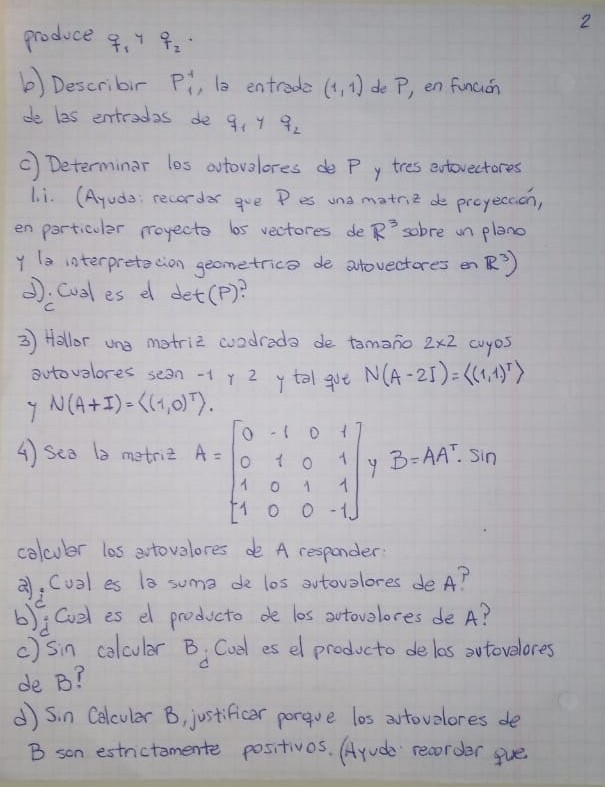 2
produce q₁ y q₂.
b) Describir P₁¹, la entrada (1,1) de P, en función
de las entradas de q₁ y q₂
c) Determinar los autovalores de P y tres autovectores
l.i. (Ayuda: recordar que P es una matriz de proyección,
en particular proyecta los vectores de ℝ³ sobre un plano
y la interpretacion geometrica de autovectores en ℝ³)
d) ¿Cual es el det(P)?
3) Hallar una matriz cuadrada de tamaño 2x2 cuyos
autovalores sean -1 y 2 y tal que N(A-2I)=⟨(1,1)ᵀ⟩
y N(A+I)=⟨(1,0)ᵀ⟩.
4) Sea la matriz A = [0 -1 0 1
0 1 0 1
1 0 1 1
1 0 0 -1] y B=AAᵀ. Sin
calcular los autovalores de A responder:
a) ¿Cual es la suma de los autovalores de A?
b) ¿Cual es el producto de los autovalores de A?
c) Sin calcular B ¿Cual es el producto de los autovalores
de B?
d) Sin Calcular B, justificar porque los autovalores de
B son estrictamente positivos. (Ayuda: recordar que